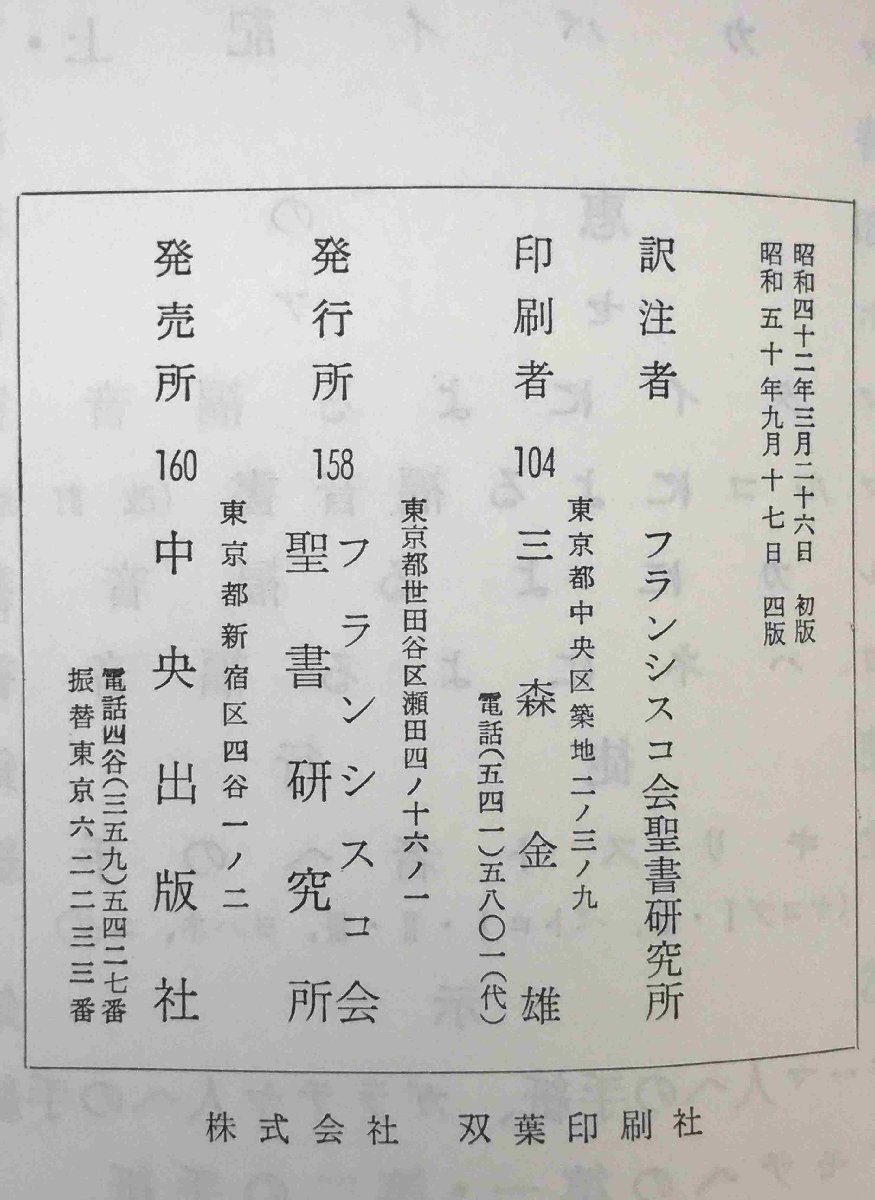 昭和四十二年三月二十六日 初版
昭和五十年九月十七日 四版
訳注者 フランシスコ会聖書研究所
東京都中央区築地二ノ三ノ九
印刷者 104 三森金雄
電話(五四一)五八〇一(代)
東京都世田谷区瀬田四ノ十六ノ一
発行所 158 フランシスコ会
聖書研究所
東京都新宿区四谷一ノ二
発売所 160 中央出版社
電話四谷(三五九)五四二七番
振替東京六二二三三番
株式会社 双葉印刷社